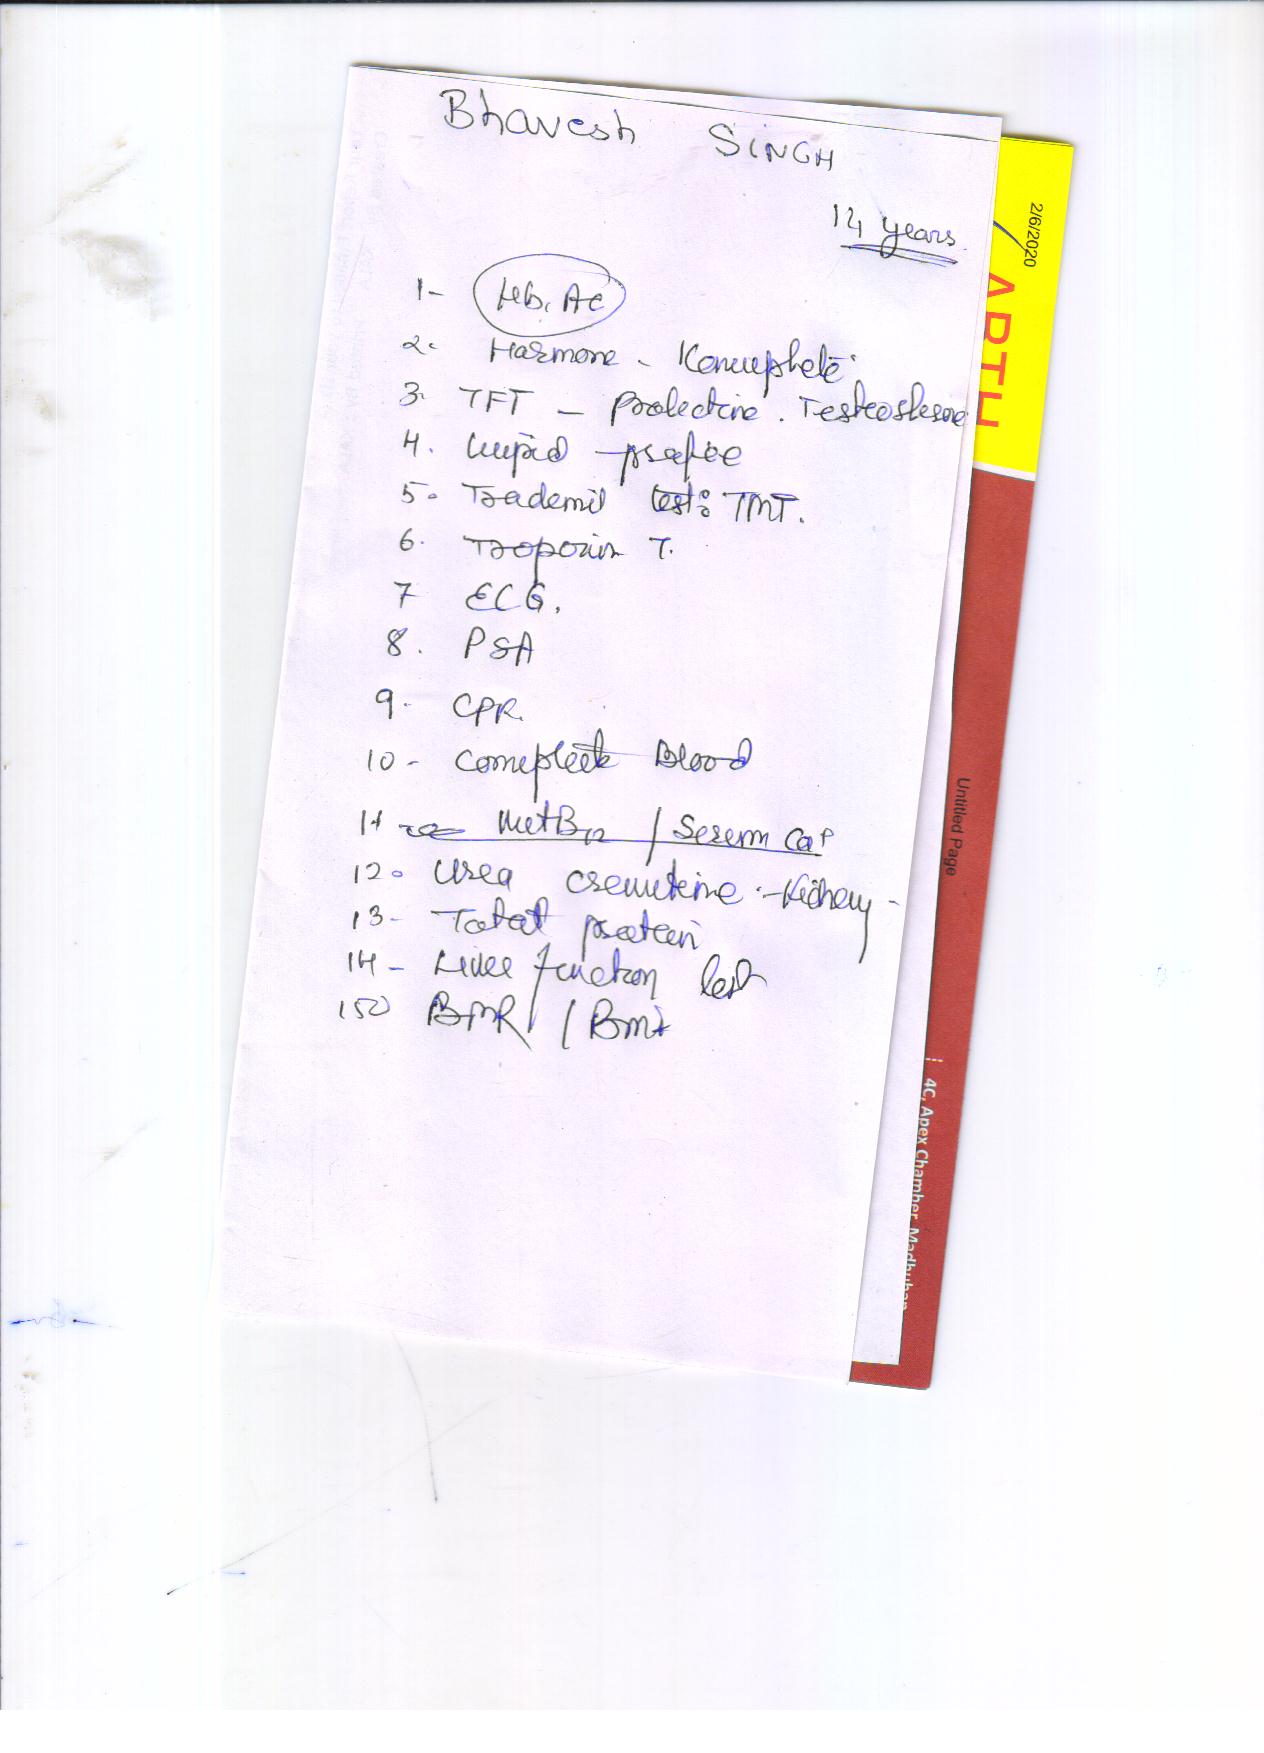 Bhavesh SINGH
14 years.
1- Hb, Ac
2. Harmone - Komuphete
3. TFT - Prolectine. Testeosterone
4. Luipid profee
5. Trademil test: TMT.
6. Troponin T.
7 ECG.
8. PSA
9. CPR.
10- Compleete Blood
11 VietB12 / Serem Ca+
12. Urea creeuteine - Kidney -
13- Total protein
14- Livee function test
15 BMR / BMI
2/6/2020
ARTH
Untitled Page
4C, Apex Chamber, Madhuban